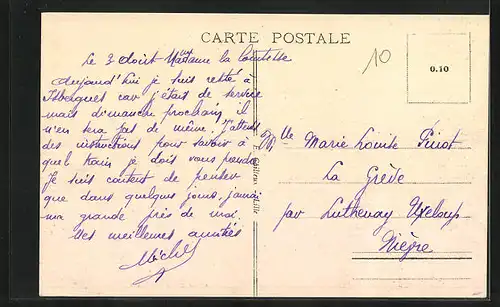 CARTE POSTALE
10
0.10
Le 3 Août Madame la Comtesse
Aujourd'hui je suis resté à
Isbergues car j'étais de service
mais dimanche prochain il
n'en sera pas de même. J'attends
des instructions pour savoir à
quel train je dois vous prendre
Je suis content de penser
que dans quelques jours j'aurai
ma grande près de moi.
Mes meilleures amitiés
Michel
Mlle Marie Louise Pinot
La Grève
par Luthenay Uxeloup
Nièvre
Lille